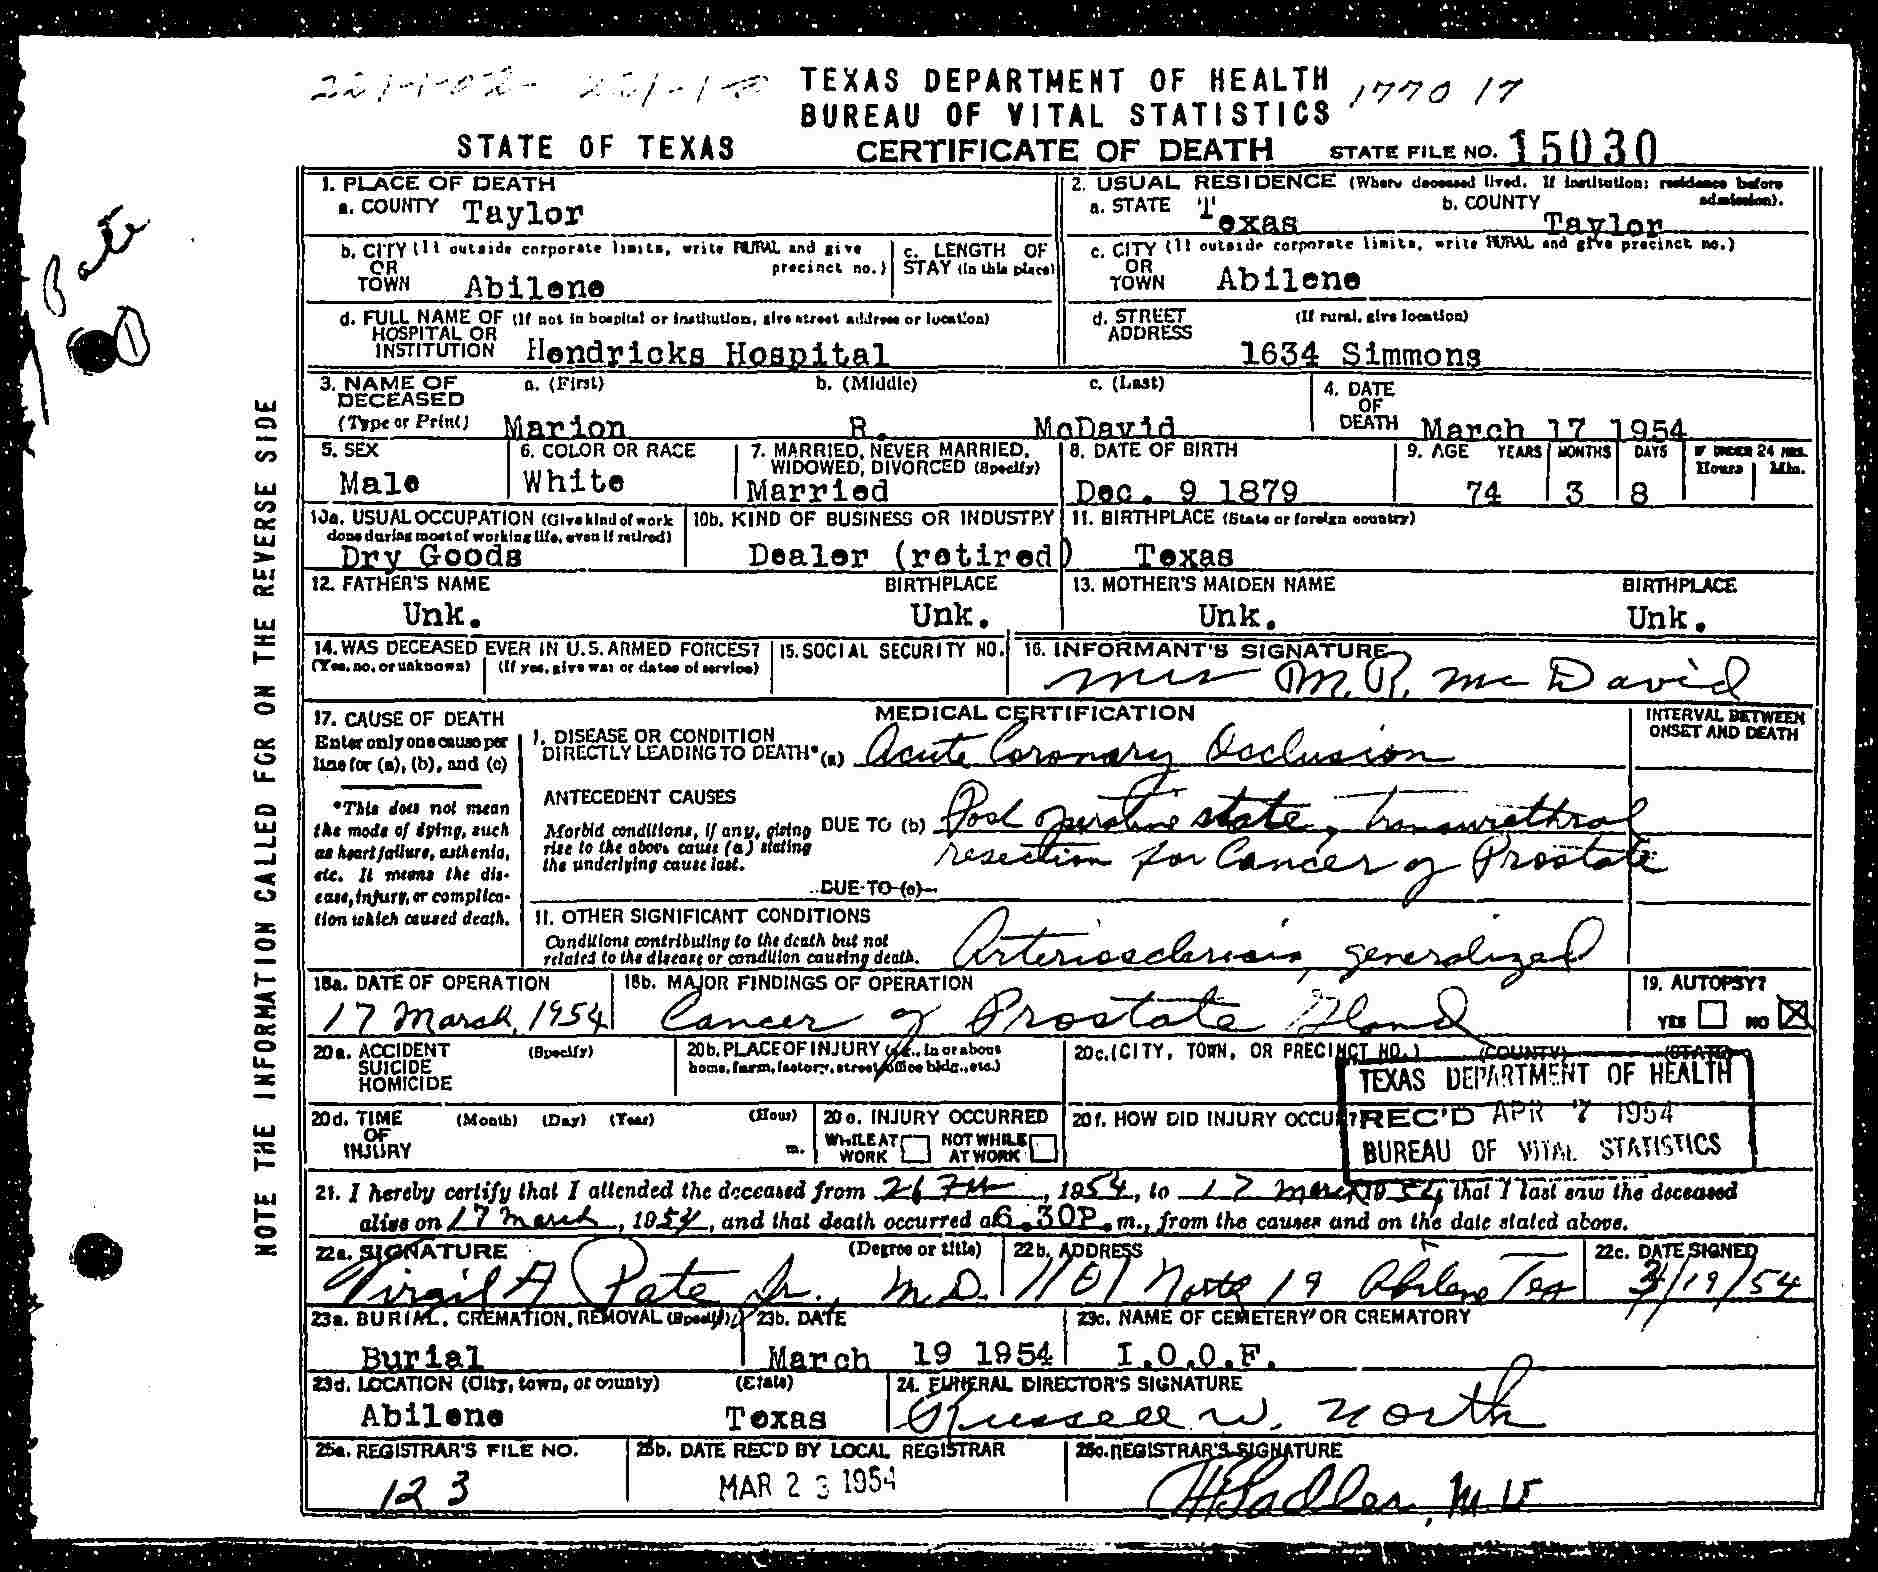 TEXAS DEPARTMENT OF HEALTH 1770 17
BUREAU OF VITAL STATISTICS
STATE OF TEXAS CERTIFICATE OF DEATH STATE FILE NO. 15030
1. PLACE OF DEATH
a. COUNTY Taylor
2. USUAL RESIDENCE (Where deceased lived. If institution: residence before admission).
a. STATE Texas b. COUNTY Taylor
b. CITY (If outside corporate limits, write RURAL and give precinct no.) OR TOWN Abilene
c. LENGTH OF STAY (in this place)
c. CITY (If outside corporate limits, write RURAL and give precinct no.) OR TOWN Abilene
d. FULL NAME OF (If not in hospital or institution, give street address or location) HOSPITAL OR INSTITUTION Hendricks Hospital
d. STREET ADDRESS (If rural, give location) 1634 Simmons
3. NAME OF DECEASED (Type or Print) a. (First) Marion b. (Middle) R. c. (Last) McDavid
4. DATE OF DEATH March 17 1954
5. SEX Male
6. COLOR OR RACE White
7. MARRIED, NEVER MARRIED, WIDOWED, DIVORCED (Specify) Married
8. DATE OF BIRTH Dec. 9 1879
9. AGE YEARS 74 MONTHS 3 DAYS 8 IF UNDER 24 HRS. Hours Min.
10a. USUAL OCCUPATION (Give kind of work done during most of working life, even if retired) Dry Goods
10b. KIND OF BUSINESS OR INDUSTRY Dealer (retired)
11. BIRTHPLACE (State or foreign country) Texas
12. FATHER'S NAME Unk. BIRTHPLACE Unk.
13. MOTHER'S MAIDEN NAME Unk. BIRTHPLACE Unk.
14. WAS DECEASED EVER IN U.S. ARMED FORCES? (Yes, no, or unknown) (If yes, give war or dates of service)
15. SOCIAL SECURITY NO.
16. INFORMANT'S SIGNATURE Mrs M. R. McDavid
17. CAUSE OF DEATH
Enter only one cause per line for (a), (b), and (c)
*This does not mean the mode of dying, such as heart failure, asthenia, etc. It means the disease, injury, or complication which caused death.
MEDICAL CERTIFICATION
INTERVAL BETWEEN ONSET AND DEATH
I. DISEASE OR CONDITION DIRECTLY LEADING TO DEATH* (a) Acute Coronary Occlusion
ANTECEDENT CAUSES
Morbid conditions, if any, giving rise to the above cause (a) stating the underlying cause last.
DUE TO (b) Post operative state, transurethral
resection for Cancer of Prostate
DUE TO (c)
II. OTHER SIGNIFICANT CONDITIONS
Conditions contributing to the death but not related to the disease or condition causing death. Arteriosclerosis, generalized
18a. DATE OF OPERATION 17 March, 1954
18b. MAJOR FINDINGS OF OPERATION Cancer of Prostate Gland
19. AUTOPSY? YES NO
20a. ACCIDENT SUICIDE HOMICIDE (Specify)
20b. PLACE OF INJURY (e.g., in or about home, farm, factory, street, office bldg., etc.)
20c. (CITY, TOWN, OR PRECINCT NO.) (COUNTY) (STATE)
TEXAS DEPARTMENT OF HEALTH
REC'D APR 7 1954
BUREAU OF VITAL STATISTICS
20d. TIME OF INJURY (Month) (Day) (Year) (Hour) m.
20e. INJURY OCCURRED WHILE AT WORK NOT WHILE AT WORK
20f. HOW DID INJURY OCCUR?
21. I hereby certify that I attended the deceased from 26 Feb, 1954, to 17 March 1954, that I last saw the deceased
alive on 17 March, 1954, and that death occurred at 6.30P.m., from the causes and on the date stated above.
22a. SIGNATURE (Degree or title) Virgil A Pate Jr., M.D.
22b. ADDRESS 1101 North 19 Abilene Tex
22c. DATE SIGNED 3/19/54
23a. BURIAL, CREMATION, REMOVAL (Specify) Burial
23b. DATE March 19 1954
23c. NAME OF CEMETERY OR CREMATORY I.O.O.F.
23d. LOCATION (City, town, or county) (State) Abilene Texas
24. FUNERAL DIRECTOR'S SIGNATURE Russell W. North
25a. REGISTRAR'S FILE NO. 123
25b. DATE REC'D BY LOCAL REGISTRAR MAR 23 1954
25c. REGISTRAR'S SIGNATURE Sadler, M.D.
NOTE THE INFORMATION CALLED FOR ON THE REVERSE SIDE
Pate